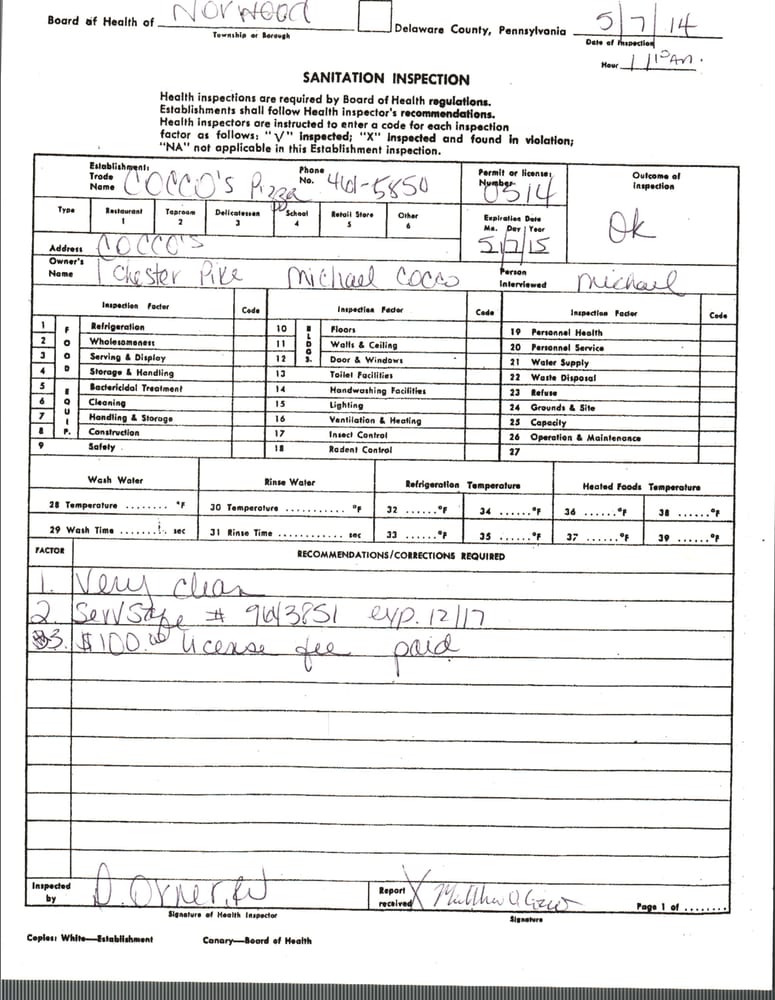 Board of Health of Norwood Delaware County, Pennsylvania 5/7/14
Township or Borough Date of Inspection
Hour 11:10 Am.
SANITATION INSPECTION
Health inspections are required by Board of Health regulations.
Establishments shall follow Health inspector's recommendations.
Health Inspectors are instructed to enter a code for each inspection
factor as follows: "V" Inspected; "X" Inspected and found in violation;
"NA" not applicable in this Establishment inspection.
Establishment: Trade Name COCCO's Pizza Phone No. 461-5850 Permit or license: Number 0514 Outcome of Inspection Ok
Type Restaurant 1 Taproom 2 Delicatessen 3 School 4 Retail Store 5 Other 6 Expiration Date Mo. Day Year 5/7/15
Address COCCO'S
Owner's Name 1 Chester Pike Michael Cocco Person Interviewed Michael
Inspection Factor Code Inspection Factor Code Inspection Factor Code
FOOD EQUIP. BLDGS.
1 Refrigeration 10 Floors 19 Personnel Health
2 Wholesomeness 11 Walls & Ceiling 20 Personnel Service
3 Serving & Display 12 Door & Windows 21 Water Supply
4 Storage & Handling 13 Toilet Facilities 22 Waste Disposal
5 Bactericidal Treatment 14 Handwashing Facilities 23 Refuse
6 Cleaning 15 Lighting 24 Grounds & Site
7 Handling & Storage 16 Ventilation & Heating 25 Capacity
8 Construction 17 Insect Control 26 Operation & Maintenance
9 Safety 18 Rodent Control 27
Wash Water Rinse Water Refrigeration Temperature Heated Foods Temperature
28 Temperature ........ °F 30 Temperature ........... °F 32 ......°F 34 ......°F 36 ......°F 38 ......°F
29 Wash Time ........ sec 31 Rinse Time ............ sec 33 ......°F 35 ......°F 37 ......°F 39 ......°F
FACTOR RECOMMENDATIONS/CORRECTIONS REQUIRED
1. Very clean
2. ServSafe # 9643851 exp. 12/17
3. $100.00 license fee paid
Inspected by Report received X Page 1 of ........
Signature of Health Inspector Signature
Copies: White—Establishment Canary—Board of Health